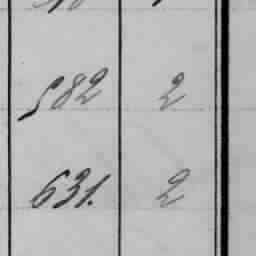 582 2
631. 2